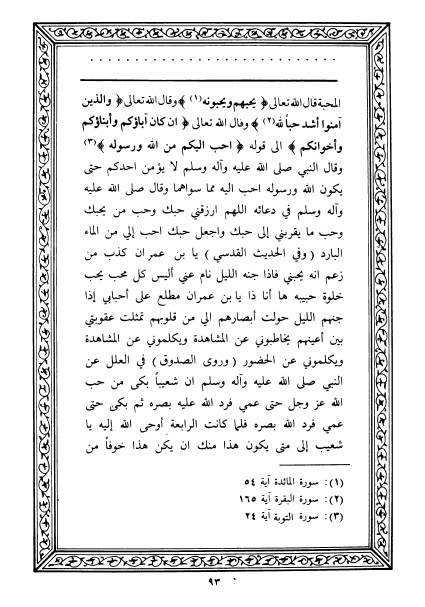 المحبة قال الله تعالى ﴿ يحبهم ويحبونه (١) ﴾ وقال الله تعالى ﴿ والذين
آمنوا أشد حباً لله (٢) ﴾ وقال الله تعالى ﴿ ان كان آباؤكم وأبناؤكم
وأخوانكم ﴾ الى قوله ﴿ احب اليكم من الله ورسوله ﴾ (٣)
وقال النبي صلى الله عليه وآله وسلم لا يؤمن احدكم حتى
يكون الله ورسوله احب اليه مما سواهما وقال صلى الله عليه
وآله وسلم في دعائه اللهم ارزقني حبك وحب من يحبك
وحب ما يقربني إلى حبك واجعل حبك احب إلي من الماء
البارد ( وفي الحديث القدسي ) يا بن عمران كذب من
زعم انه يحبني فاذا جنه الليل نام عني أليس كل محب يحب
خلوة حبيبه ها أنا ذا يابن عمران مطلع على أحبابي إذا
جنهم الليل حولت أبصارهم الي من قلوبهم تمثلت عقوبتي
بين أعينهم يخاطبوني عن المشاهدة ويكلموني عن المشاهدة
ويكلموني عن الحضور ( وروى الصدوق ) في العلل عن
النبي صلى الله عليه وآله وسلم ان شعيباً بكى من حب
الله عز وجل حتى عمي فرد الله عليه بصره ثم بكى حتى
عمي فرد الله بصره فلما كانت الرابعة أوحى الله إليه يا
شعيب إلى متى يكون هذا منك ان يكن هذا خوفاً من
(١): سورة المائدة آية ٥٤
(٢): سورة البقرة آية ١٦٥
(٣): سورة التوبة آية ٢٤
٩٣